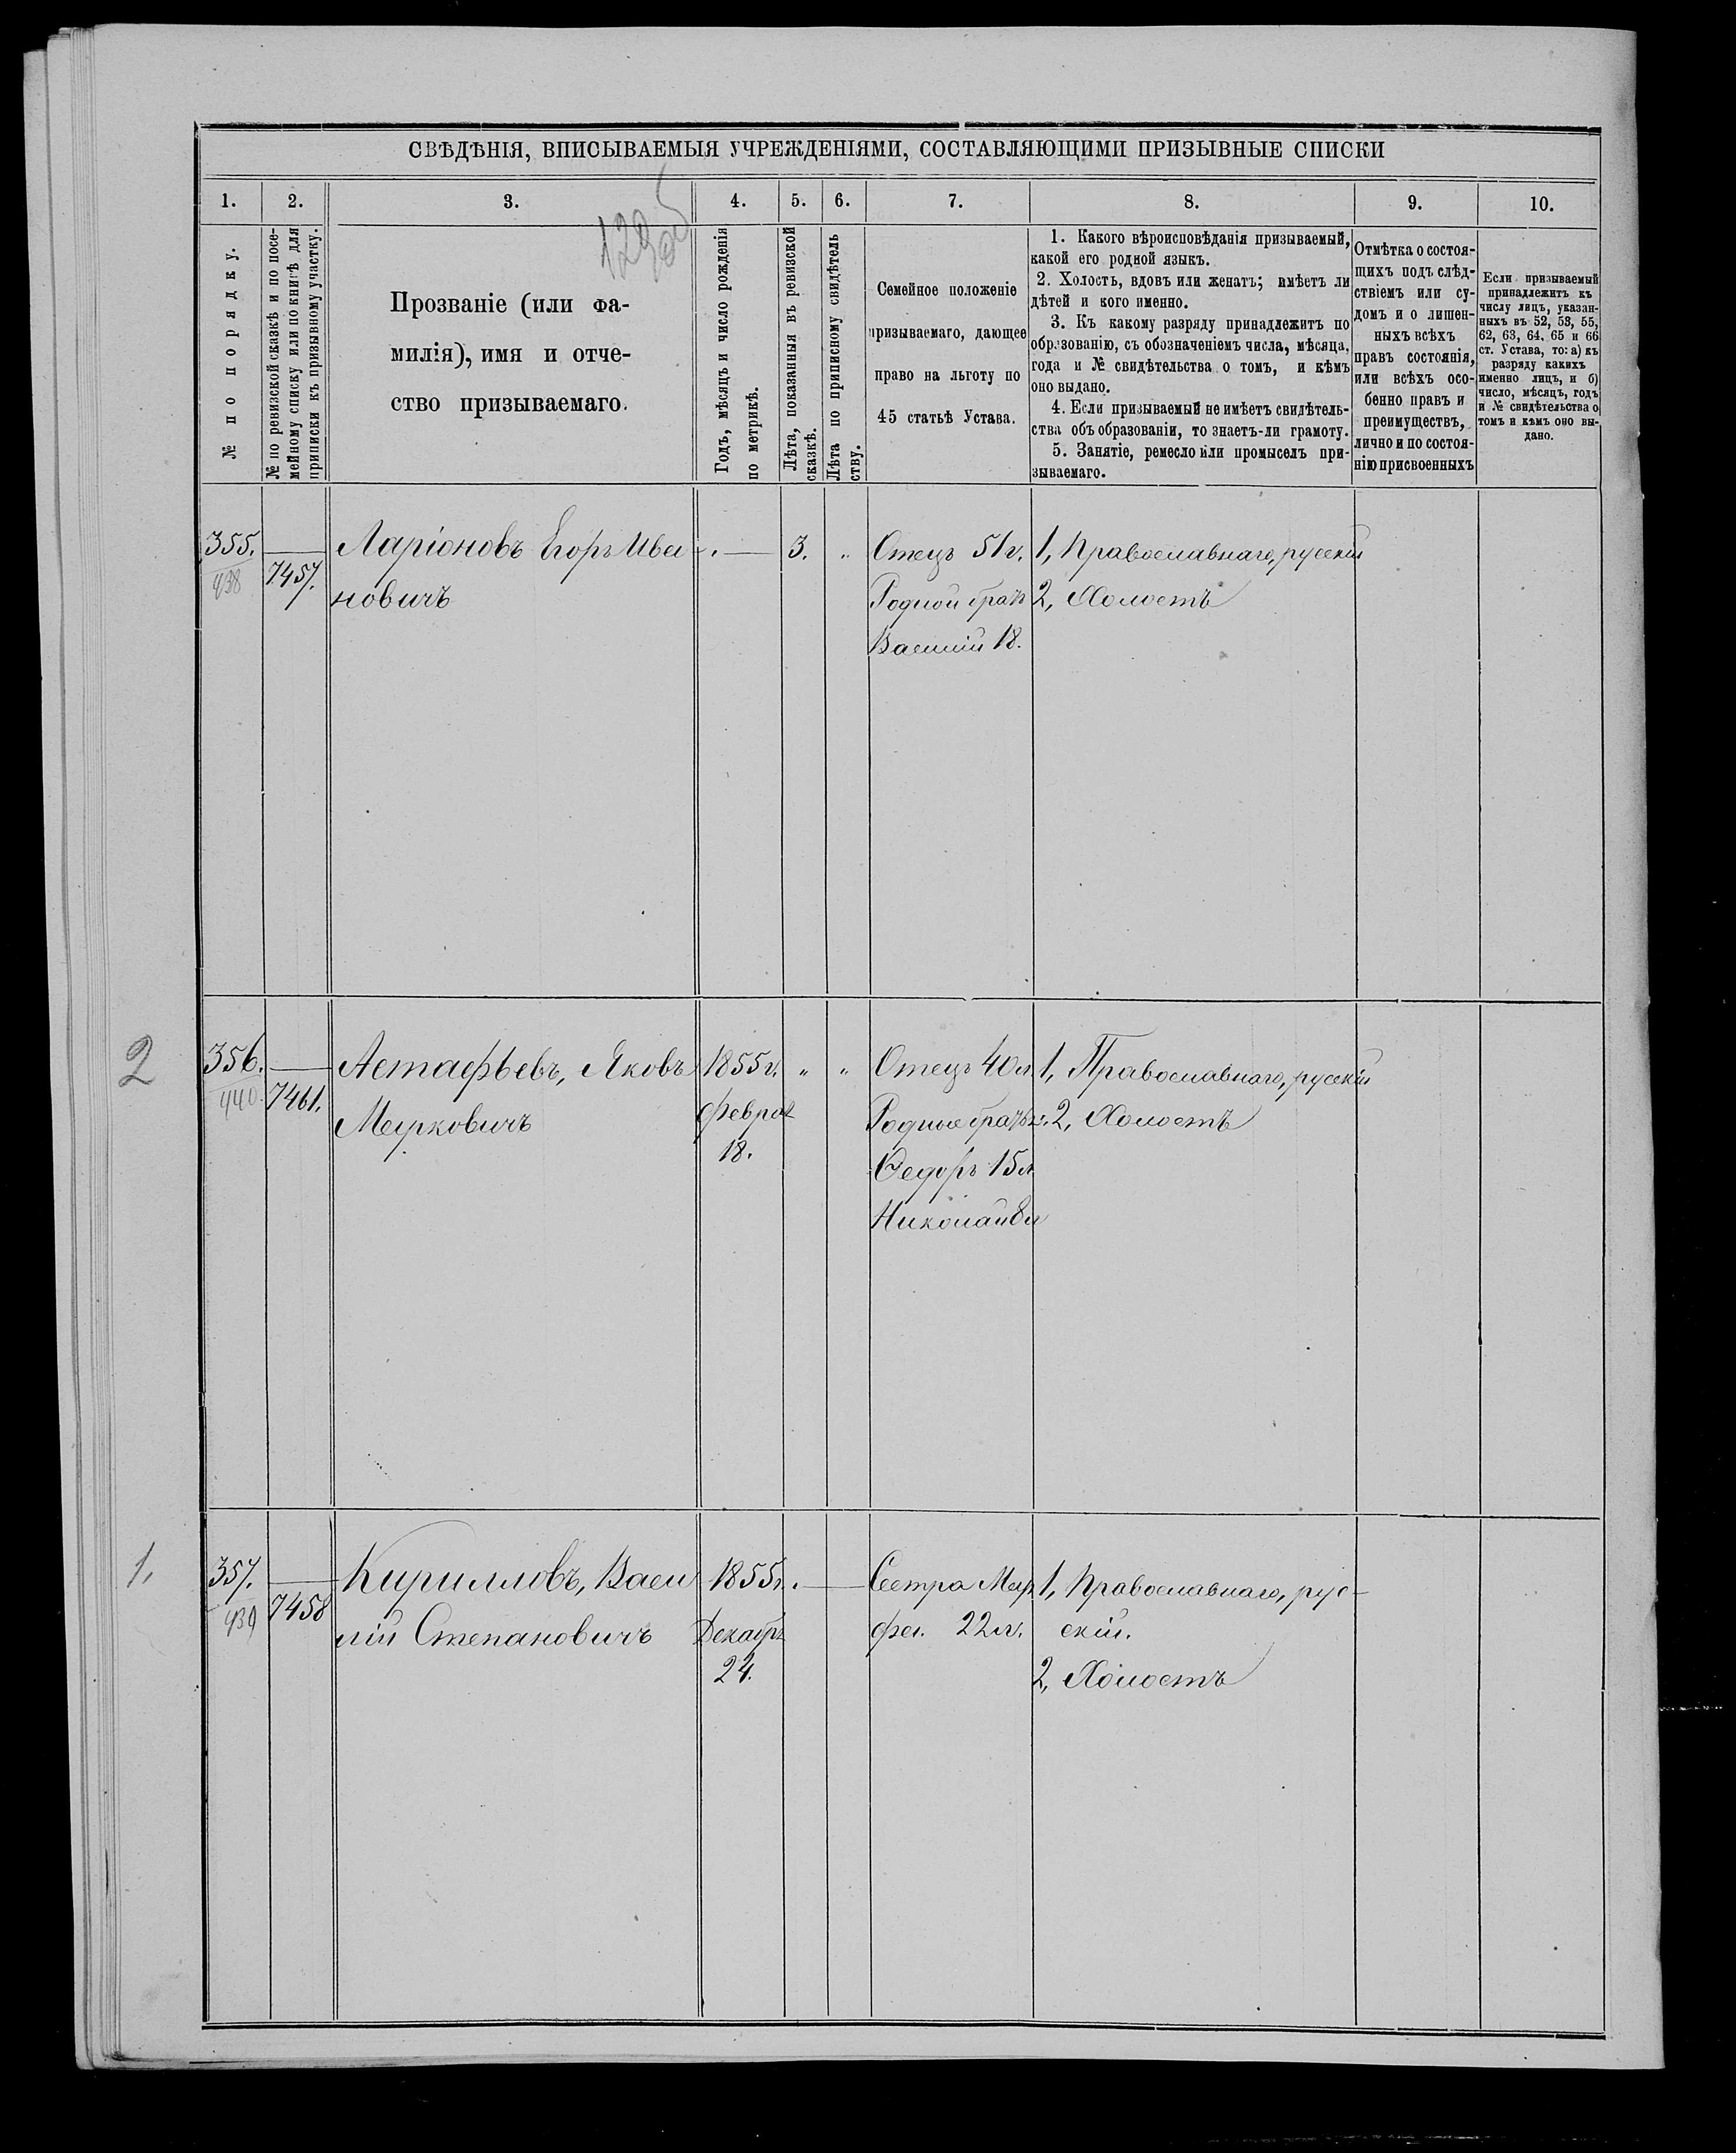 СВѢДѢНІЯ, ВПИСЫВАЕМЫЯ УЧРЕЖДЕНІЯМИ, СОСТАВЛЯЮЩИМИ ПРИЗЫВНЫЕ СПИСКИ
1. 2. 3. 4. 5. 6. 7. 8. 9. 10.
129 об
№ по порядку.
№ по ревизской сказкѣ и по посе-
мейному списку или по книгѣ для
приписки къ призывному участку.
Прозваніе (или фа-
милія), имя и отче-
ство призываемаго.
Годъ, мѣсяцъ и число рожденія
по метрикѣ.
Лѣта, показанныя въ ревизской
сказкѣ.
Лѣта по приписному свидѣтель
ству.
Семейное положеніе
призываемаго, дающее
право на льготу по
45 статьѣ Устава.
1. Какого вѣроисповѣданія призываемый,
какой его родной языкъ.
2. Холостъ, вдовъ или женатъ; имѣетъ ли
дѣтей и кого именно.
3. Къ какому разряду принадлежитъ по
образованію, съ обозначеніемъ числа, мѣсяца,
года и № свидѣтельства о томъ, и кѣмъ
оно выдано.
4. Если призываемый не имѣетъ свидѣтель-
ства объ образованіи, то знаетъ-ли грамоту.
5. Занятіе, ремесло или промыселъ при-
зываемаго.
Отмѣтка о состоя-
щихъ подъ слѣд-
ствіемъ или су-
домъ и о лишен-
ныхъ всѣхъ
правъ состоянія,
или всѣхъ осо-
бенно правъ и
преимуществъ,
лично и по состоя-
нію присвоенныхъ
Если призываемый
принадлежитъ къ
числу лицъ, указан-
ныхъ въ 52, 53, 55,
62, 63, 64, 65 и 66
ст. Устава, то: а) къ
разряду какихъ
именно лицъ, и б)
число, мѣсяцъ, годъ
и № свидѣтельства о
томъ и кѣмъ оно вы-
дано.
355. — Ларіоновъ Егоръ Ива — 3. „ Отецъ 51 г. 1, Православнаго, русскій
438 7457. новичъ Родной братъ 2, Холостъ
Василій 18.
2 356. — Астафьевъ, Яковъ 1855 г. „ „ Отецъ 40 л. 1, Православнаго, русскій
440. 7461. Марковичъ феврал Родные братья: 2, Холостъ
18. Ѳедоръ 15 л
Николай 8 л
1. 357. — Кирилловъ, Васи 1855 г. — Сестра Мар 1, Православнаго, рус-
439 7458 лій Степановичъ Декабр фа. 22 л. скій.
24. 2, Холостъ